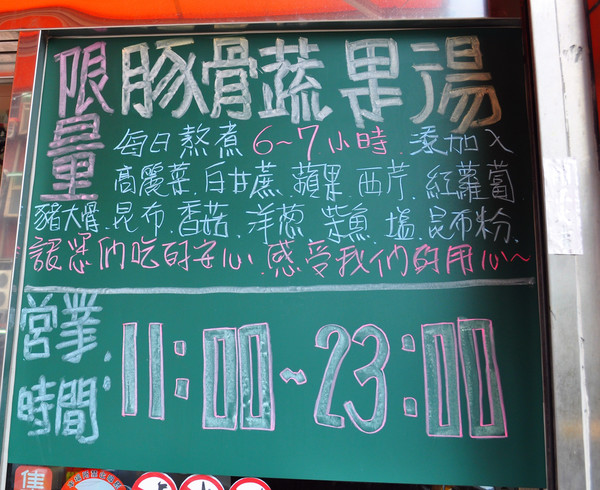 限量
豚骨蔬果湯
每日熬煮6~7小時.添加入
高麗菜.白甘蔗.蘋果.西芹.紅蘿蔔
豬大骨.昆布.香菇.洋蔥.柴魚.塩.昆布粉.
讓您們吃的安心.感受我們的用心~
營業.
時間:
11:00~23:00